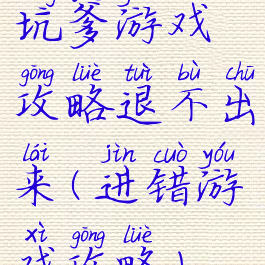 坑爹游戏
gōng lüè tuì bù chū
攻略退不出
lái jìn cuò yóu
来(进错游
xì gōng lüè
戏攻略)